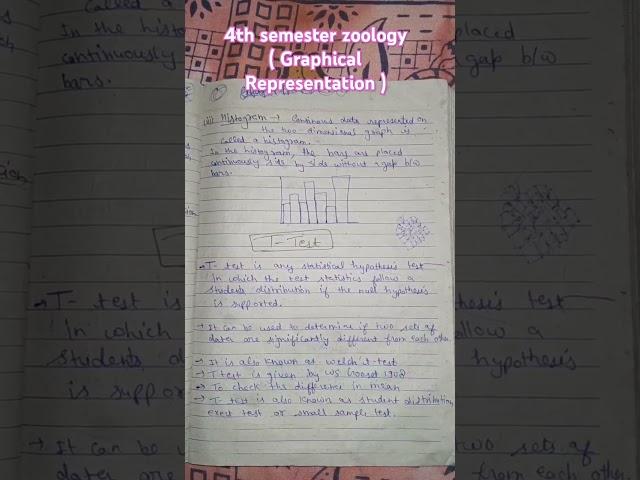 4th semester zoology
( Graphical
Representation )
(iii) Histogram → Continous data represented on
the two dimensional graph is
called a histogram.
In the histogram, the bars are placed
continuously side by side without a gap b/w
bars.
T-Test
→ T- test is any statistical hypothesis test
In which the test statistics follow a
students distribution if the null hypothesis
is supported.
→ It can be used to determine if two sets of
data are significantly different from each other.
→ It is also known as welch's t-test
→ T test is given by WS Gosset 1908
→ To check the difference in mean
→ T- test is also known as student distribution,
exact test or small sample test.